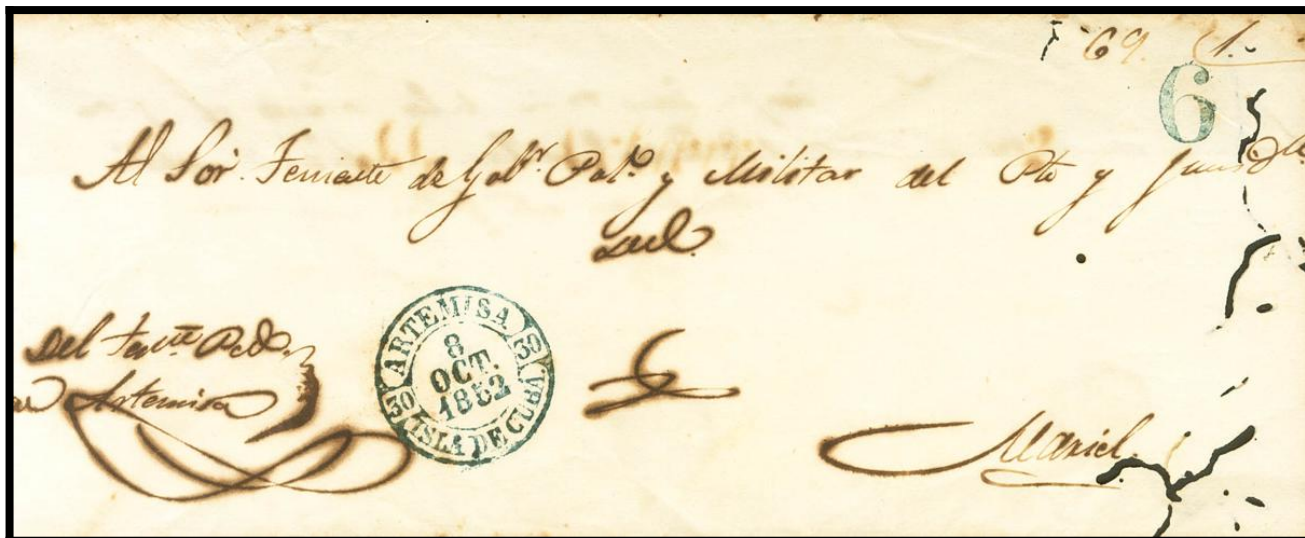 69. 1.
6
Al Sor. Teniente de Gobr. Polo. y Militar del Pto y
del
Del Tente. Pedo.
Artemisa
ARTEMISA
30 30
8
OCT.
1852
ISLA DE CUBA
Mariel.